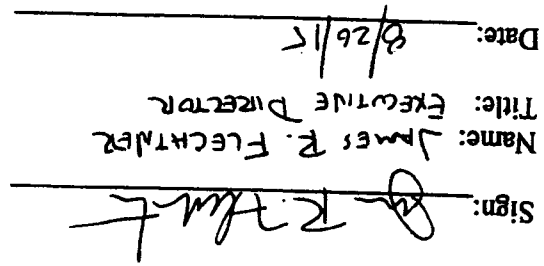 Sign:
Name: JAMES R. FLECHTNER
Title: EXECUTIVE DIRECTOR
Date: 8/26/15